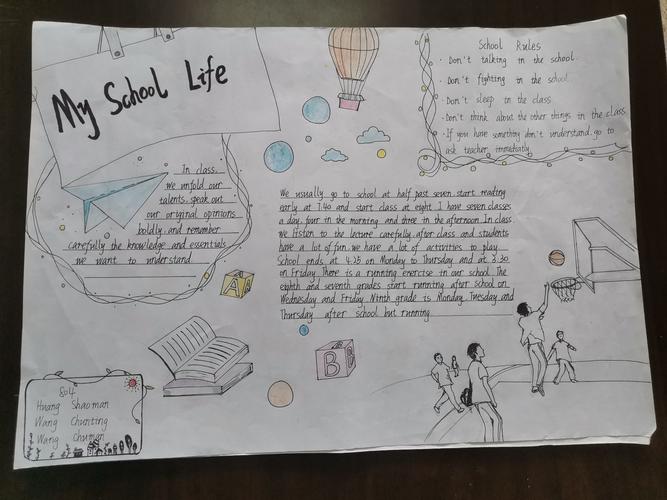 My School Life
In class,
we unfold our
talents, speak out
our original opinions
boldly and remember
carefully the knowledge and essentials
we want to understand.
School Rules
· Don't talking in the school.
· Don't fighting in the school.
· Don't sleep in the class
· Don't think about the other things in the class.
· If you have something don't understand. go to
ask teacher immediatly.
We usually go to school at half past seven. start reading
early at 7.40 and start class at eight. I have seven classes
a day, four in the morning and three in the afternoon. In class,
we listen to the lecture carefully. after class and students
have a lot of fun. we have a lot of activities to play.
School ends at 4.25 on Monday to Thursday and at 3.30
on Friday. There is a running exercise in our school. The
eighth and seventh grades start running after school on
Wednesday and Friday. Ninth grade is Monday, Tuesday and
Thursday after school but running
A
B
804
Huang Shaoman
Wang Chunting
Wang